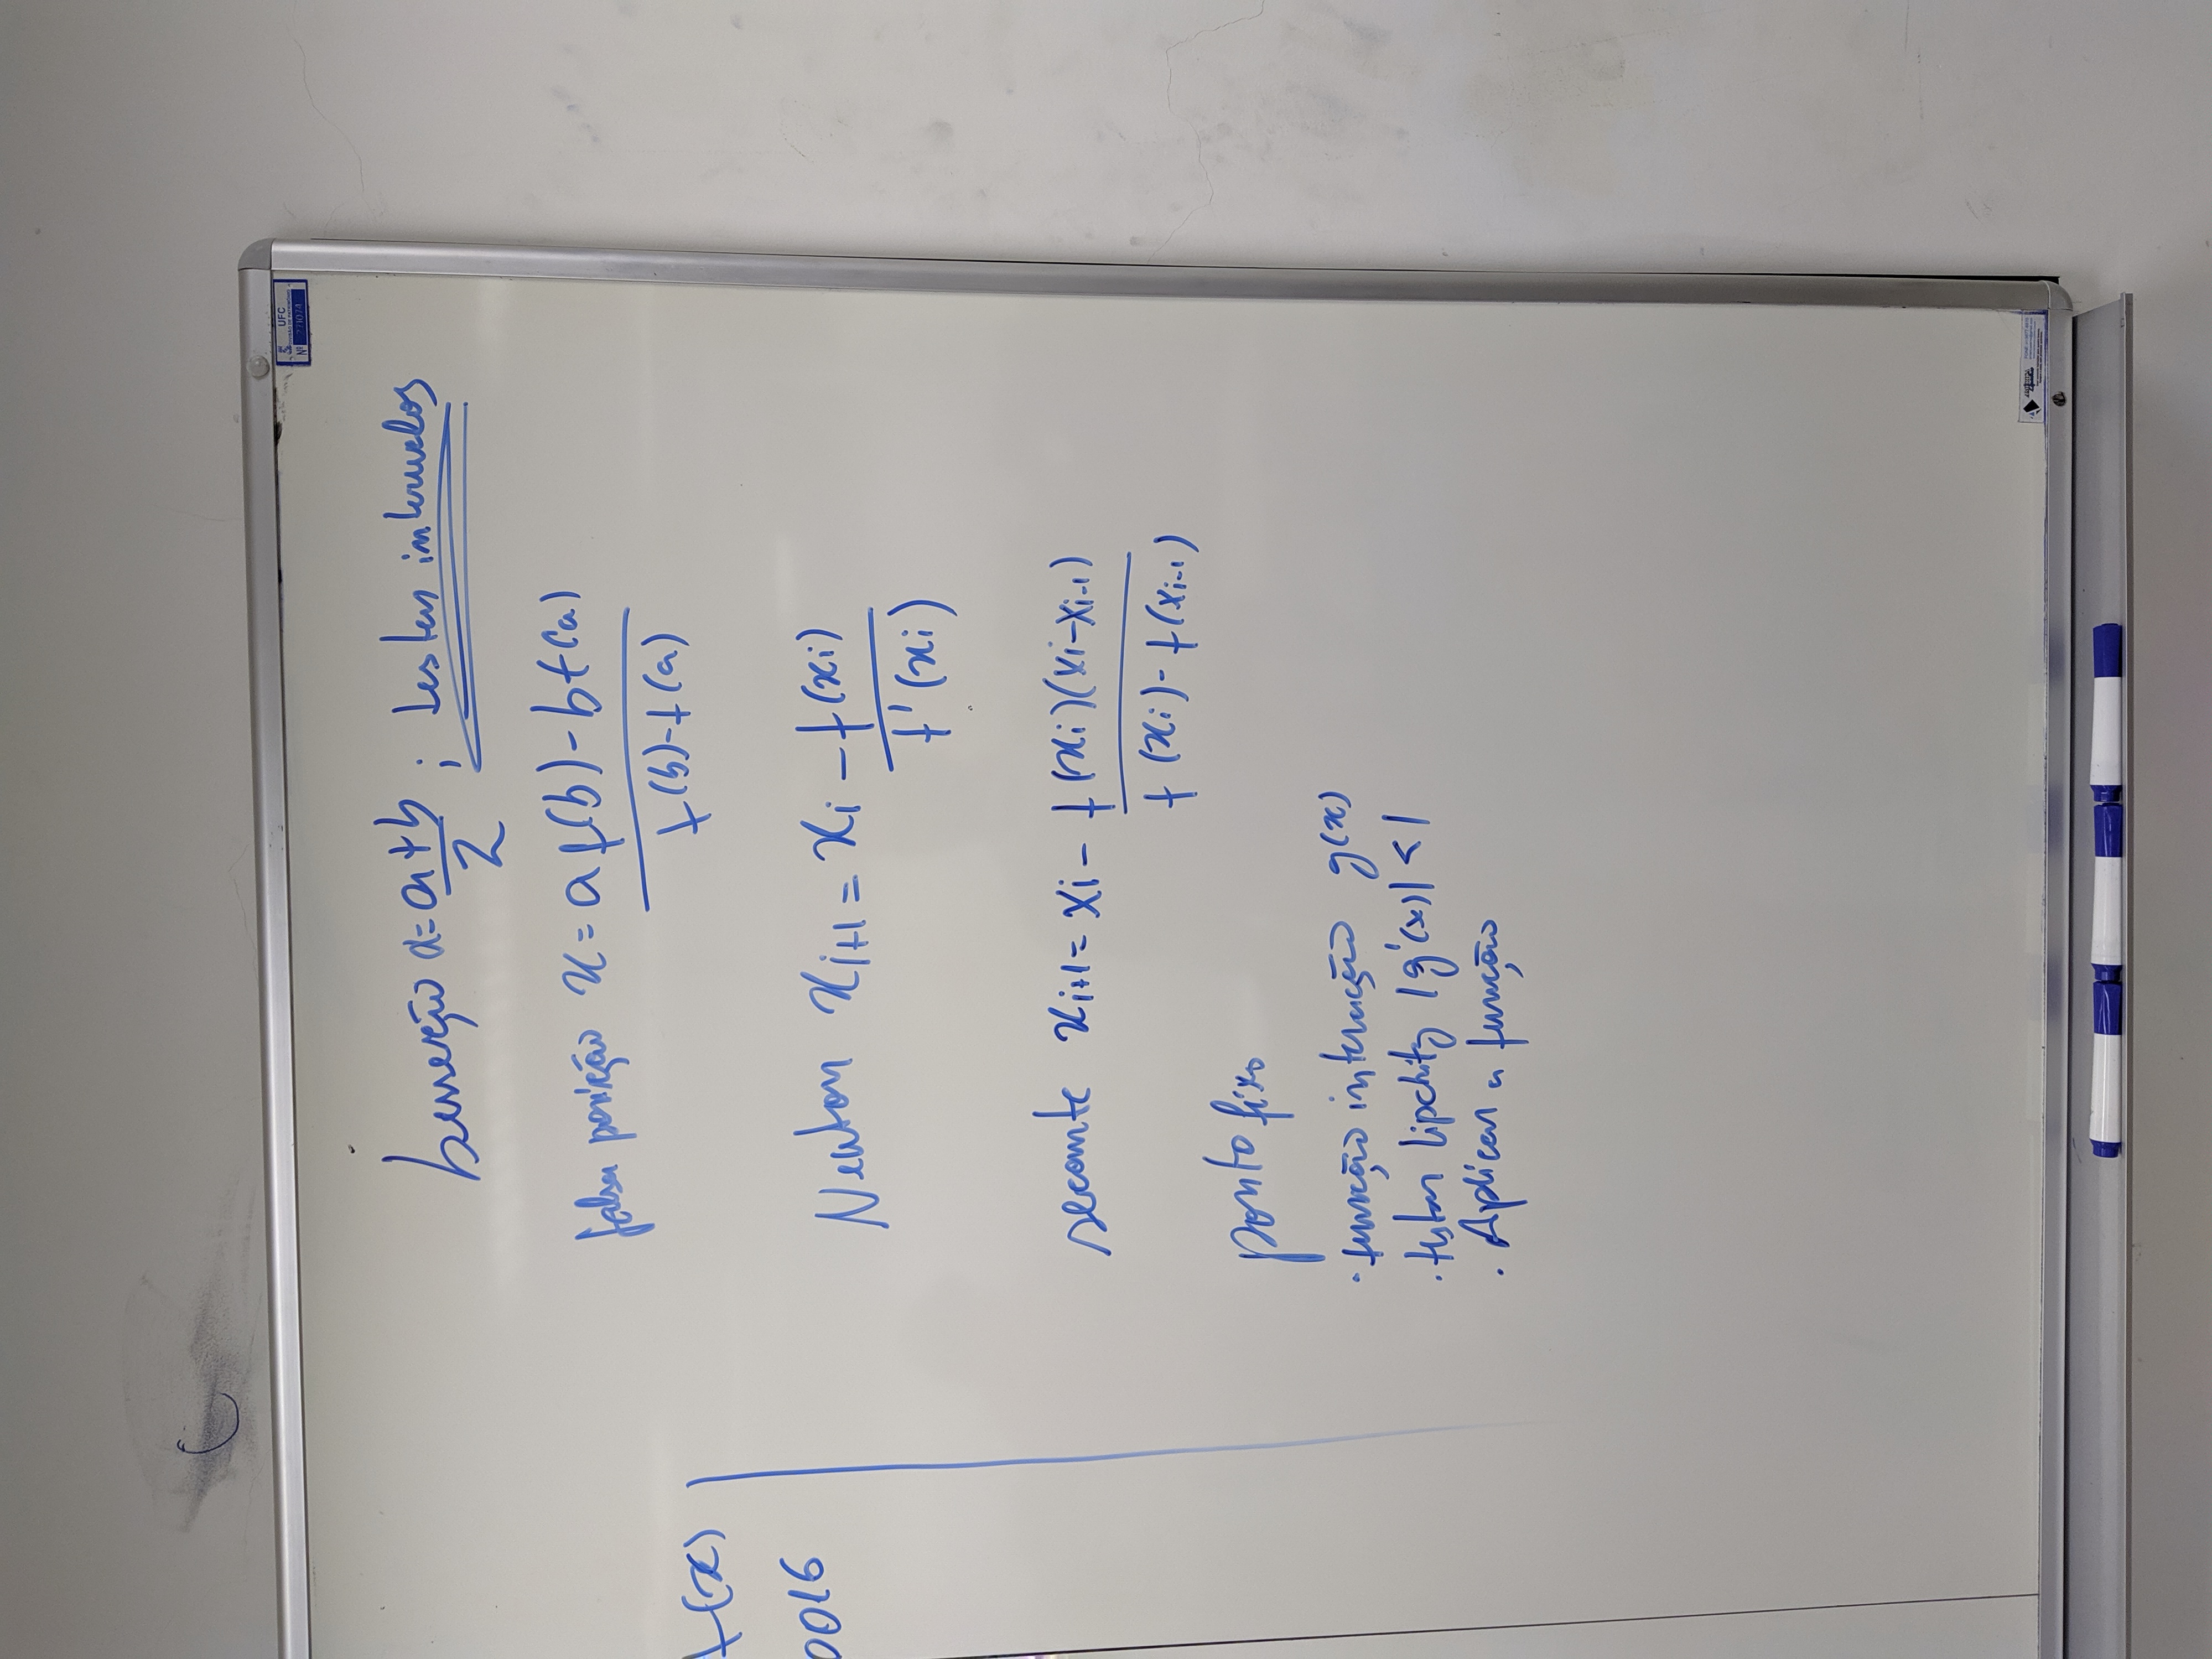 UFC
DIVISÃO DE PATRIMÔNIO
Nº 271074
bisseção x = a+b / 2 ; testar intervalos
falsa posição x = a f(b) - b f(a) / f(b) - f(a)
f(x)
0016
Newton xi+1 = xi - f(xi) / f'(xi)
secante xi+1 = xi - f(xi)(xi - xi-1) / f(xi) - f(xi-1)
ponto fixo
· função interação g(x)
· testar lipchitz |g'(x)| < 1
· Aplicar a função